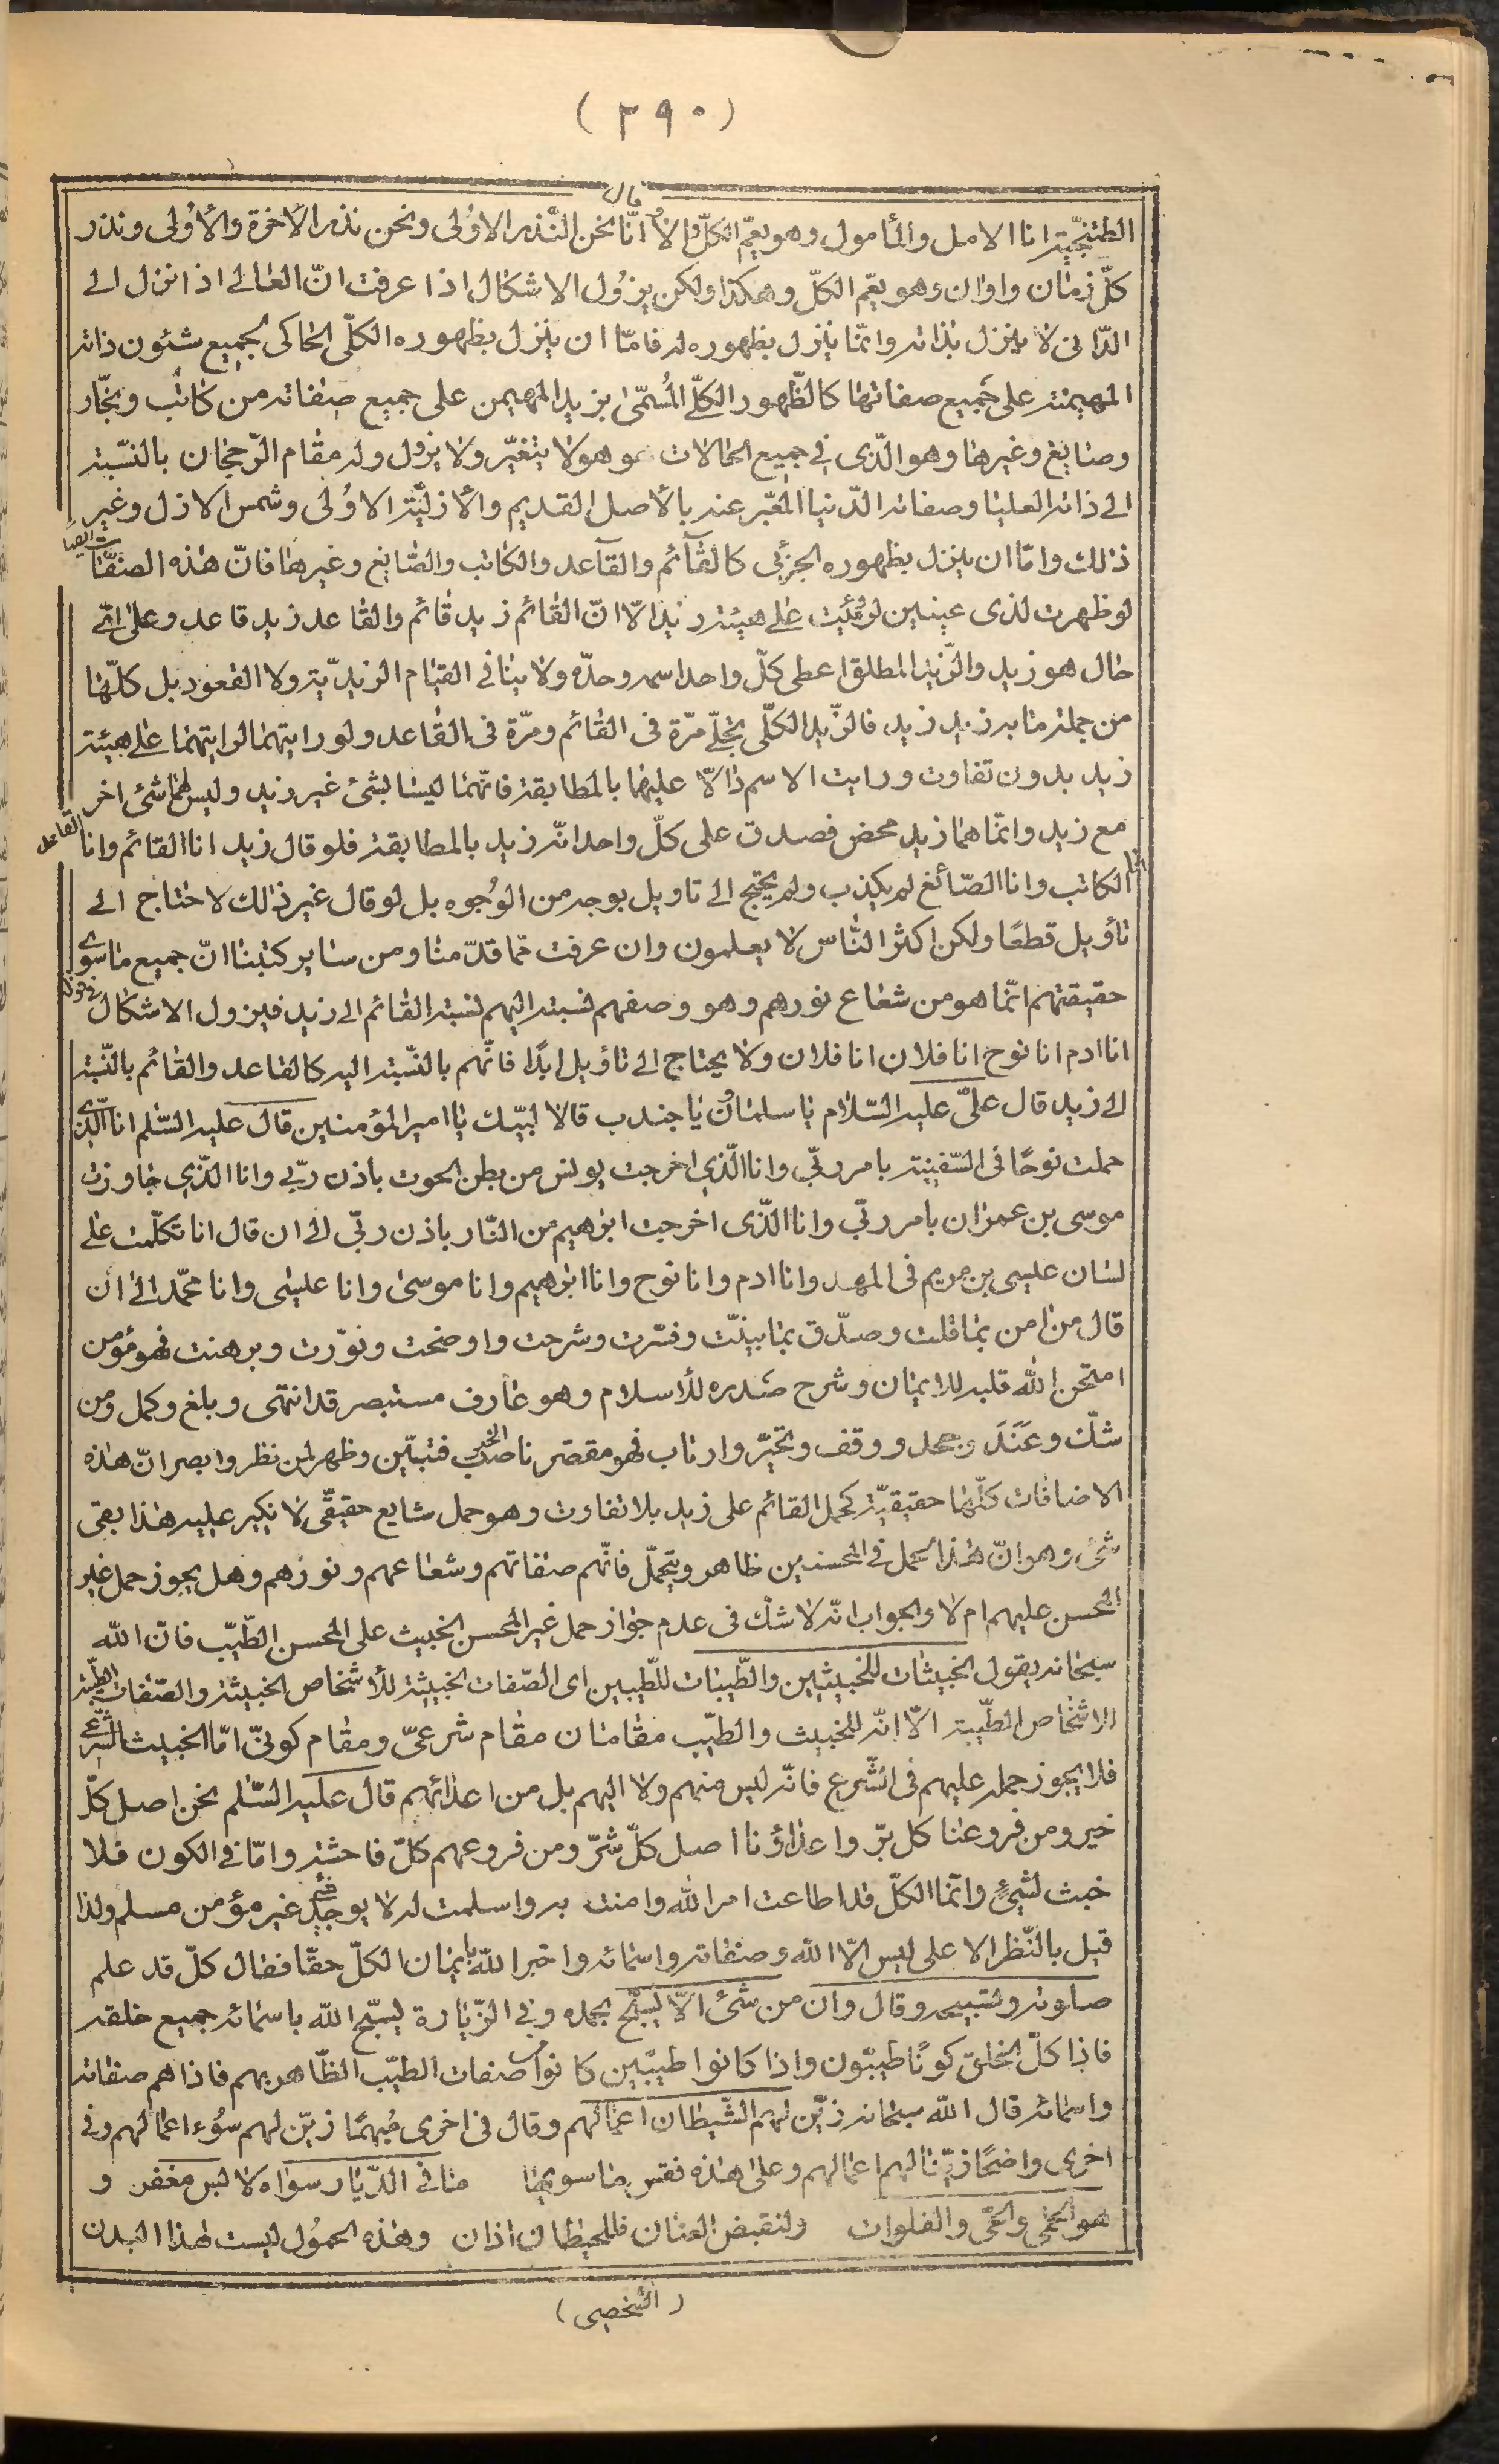 (٢٩٠)
الطتنجيّة انا الامل والمأمول وهو يعمّ الكلّ والا قال انّا نحن النّذر الاوُلى ونحن نذر الأخرة والأوُلى ونذر
كلّ زمان واوان وهو يعمّ الكلّ وهكذا ولكن يزوُل الاشكال اذا عرفت انّ العالى اذا نزل الى
الدّانى لا ينزل بذاته وانّما ينزل بظهوره له فامّا ان ينزل بظهوره الكلّى الحاكى لجميع شئون ذاته
المهيمنة على جميع صفاتها كالظّهور الكلّى المُسمّىٰ بزيد المهيمن على جميع صفاته من كاتب ونجّار
وصايغ وغيرها وهو الّذى فى جميع الحالات هو هو لا يتغيّر ولا يزول وله مقام الرّجحان بالنّسبة
الى ذاته العليا وصفاته الدّنيا المعّبر عنه بالأصل القديم والأزليّة الاوُلى وشمس الازل وغير
ذلك وامّا ان ينزل بظهوره الجزئى كالقآئم والقآعد والكاتب والصّايغ وغيرها فانّ هذه الصفات
لو ظهرت لذى عينين لرؤيت على هيئة زيد الّا انّ القائم زيد قائم والقاعد زيد قاعد وعلى اىّ
حال هو زيد والزّيد المطلق اعطى كلّ واحد اسمه وحدّه ولا ينافى القيام الزيديّة ولا القعود بل كلّها
من جملة ما به زيد زيد، فالزّيد الكلّى تجلّى مرّة فى القائم ومرّة فى القاعد ولو رايتهما لرايتهما على هيئة
زيد بدون تفاوت ورايت الاسم دالاّ عليها بالمطابقة فانّهما ليسا بشئ غير زيد وليس لهما شئ اخر
مع زيد وانّما هما زيد محض فصدق على كلّ واحد انّه زيد بالمطابقة فلو قال زيد انا القائم وانا القاعد
انا الكاتب وانا الصّائغ لم يكذب ولم يحتج الى تاويل بوجه من الوُجوه بل لو قال غير ذلك لاحتاج الى
تأويل قطعًا ولكن اكثر النّاس لا يعلمون وان عرفت ممّا قدّمنا ومن ساير كتبنا انّ جميع ما سوى
حقيقتهم انّما هو من شعاع نورهم وهو وصفهم نسبته اليهم نسبة القائم الى زيد فيزول الاشكال فى قوله
انا ادم انا نوح انا فلان انا فلان ولا يحتاج الى تأويل ابدًا فانّهم بالنّسبة اليه كالقاعد والقائم بالنّسبة
الى زيد قال علىّ عليه السّلام يا سلمان ويا جندب قالا لبيّك يا امير المؤمنين قال عليه السّلم انا الّذى
حملت نوحًا فى السّفينة بامر ربّى وانا الّذى اخرجت يونس من بطن الحوت باذن ربّى وانا الّذى جاوزت
موسى بن عمران بامر ربّى وانا الّذى اخرجت ابرهيم من النّار باذن ربّى الى ان قال انا تكلّمت على
لسان عيسى بن مريم فى المهد وانا ادم وانا نوح وانا ابرهيم وانا موسىٰ وانا عيسٰى وانا محمّد الى ان
قال من امن بما قلت وصدّق بما بينّت وفسّرت وشرحت واوضحت ونوّرت وبرهنت فهو مؤمن
امتحن الله قلبه للايمان وشرح صَدره للأسلام وهو عارف مستبصر قد انتهى وبلغ وكمل ومن
شكّ وعَنَدَ وجحد ووقف وتحيّر وارتاب فهو مقصّر ناصب الخبر فتبيّن وظهر لمن نظر وابصر انّ هذه
الاضافات كلّها حقيقيّة كحمل القائم على زيد بلا تفاوت وهو حمل شايع حقيقّى لا نكير عليه هذا بقى
شئ وهو انّ هذا الحمل فى المحسنين ظاهر ويتجمّل فانّهم صفاتهم وشعاعهم ونورهم وهل يجوز حمل غير
المحسن عليهم ام لا والجواب انّه لا شكّ فى عدم جواز حمل غير المحسن الخبيث على المحسن الطّيّب فانّ الله
سبحانه يقول الخبيثات للخبيثين والطّيبات للطّيبين اى الصّفات الخبيثة للأشخاص الخبيثة والصّفات الطيّبة
للاشخاص الطيّبة الّا انّه للخبيث والطيّب مقامان مقام شرعىّ ومقام كونىّ امّا الخبيث الشّرعى
فلا يجوز حمله عليهم فى الشّرع فانّه ليس منهم ولا اليهم بل من اعدائهم قال عليه السّلم نحن اصل كلّ
خير ومن فروعنا كل برّ واعداؤنا اصل كلّ شرّ ومن فروعهم كلّ فاحشة وامّا فى الكون فلا
خبث لشئٍ وانّما الكلّ قد اطاعت امر الله وامنت به واسلمت له لا يوجد فيه غير مؤمن مسلم ولذا
قيل بالنّظر الاعلى ليس الّا الله وصفاته واسمائه واخبر الله بايمان الكلّ حقّا فقال كلّ قد علم
صلوته وتسبيحه وقال وان من شئ الّا يسبّح بحمده وفى الزّيارة يسبّح الله باسمائه جميع خلقه
فاذا كلّ الخلق كونًا طيبّون واذا كانوا طيبّين كانوا صفات الطيّب الظّاهر بهم فاذا هم صفاته
واسمائه قال الله سبحانه زيّن لهم الشّيطان اعمالهم وقال فى اخرى مُبهمًا زيّن لهم سوُء اعمالهم وفى
اخرى واضحًا زيّنا لهم اعمالهم وعلى هذه فقس ما سويها ما فى الدّيار سواه لابس مغفر و
هو الحمى والحىّ والفلوات ولنقبض العنان فللحيطان اذان وهذه الحموُل ليست لهذا البدن
(الشخصى)